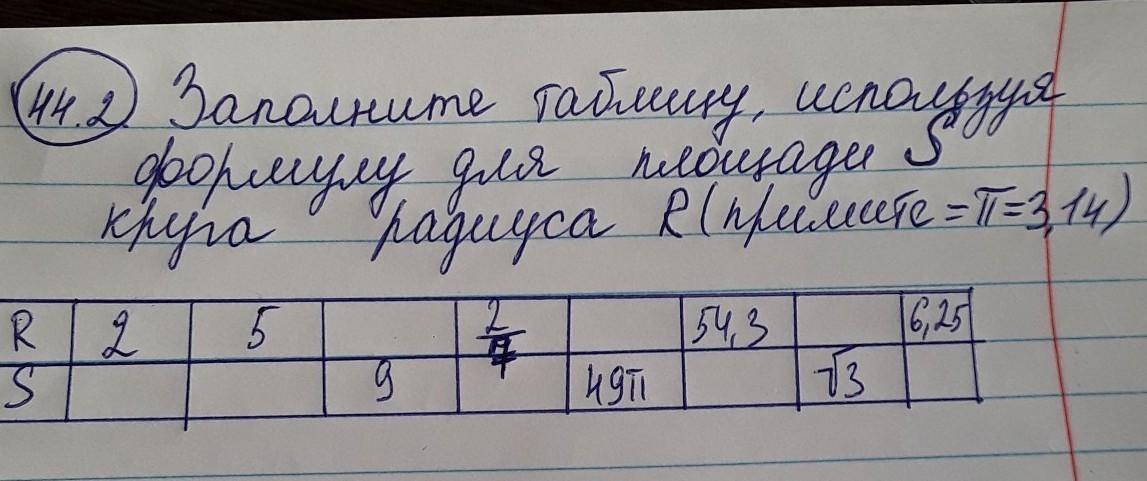 44.2 Заполните таблицу, используя
формулу для площади S
круга радиуса R (примите = π = 3,14)
R 2 5 2/7 54,3 6,25
S 9 49π √3